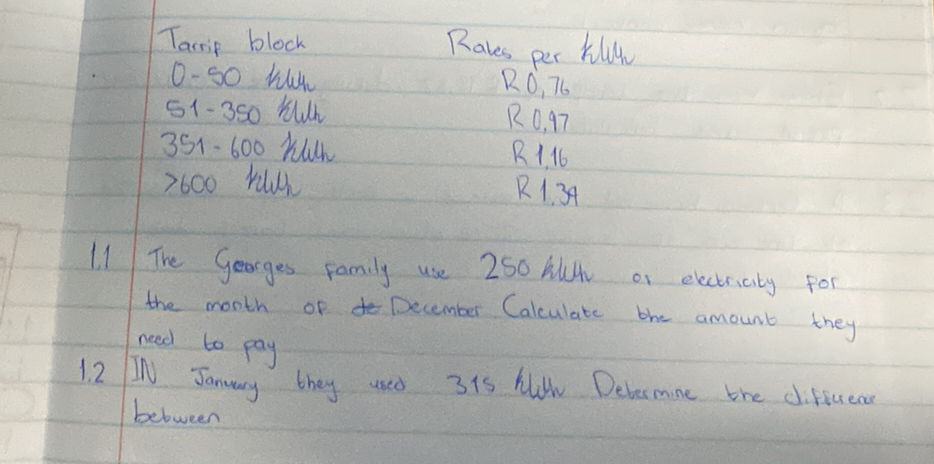 Tarrif block Rates per kWh
0-50 kWh R 0,76
51-350 kWh R 0,97
351-600 kWh R 1,16
>600 kWh R 1.34
1.1 The Georges family use 250 kWh of electricity for
the month of December Calculate the amount they
need to pay
1.2 IN January they used 315 kWh Determine the difference
between